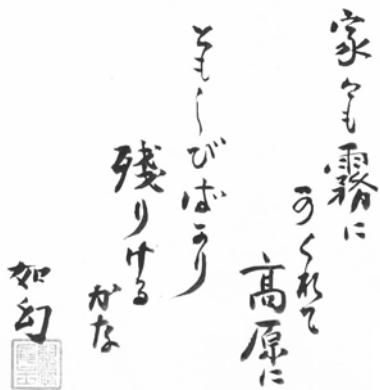 家々も霧に
かくれて
高原に
ともしびばかり
残りける
かな
如幻